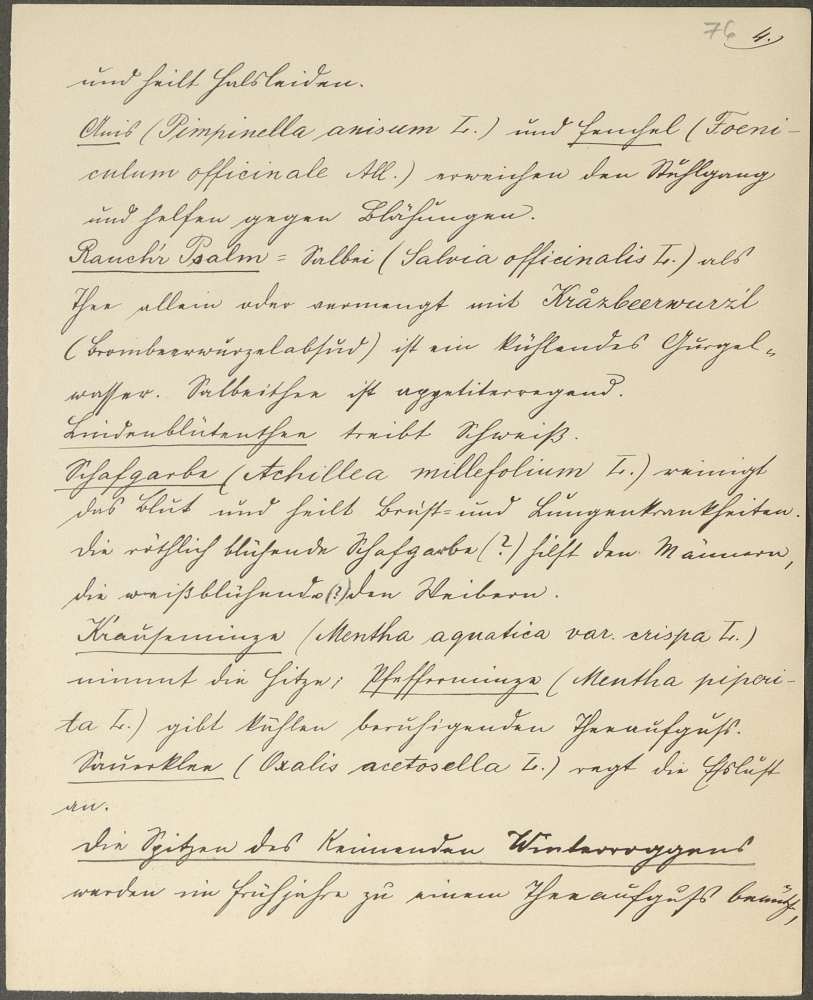 76 4.
und heilt Halsleiden.
Anis (Pimpinella anisum L.) und Fenchel (Foeni-
culum officinale All.) erweichen den Stuhlgang
und helfen gegen Blähungen.
Rauch'r Psalm = Salbei (Salvia officinalis L.) als
Thee allein oder vermengt mit Kråzbeerwurz'l
(Brombeerwurzelabsud) ist ein kühlendes Gurgel-
wasser. Salbeithee ist appetiterregend.
Lindenblütenthee treibt Schweiß.
Schafgarbe (Achillea millefolium L.) reinigt
das Blut und heilt Brust- und Lungenkrankheiten.
Die röthlich blühende Schafgarbe (?) hilft den Männern,
die weißblühende (?) den Weibern.
Krauseminze (Mentha aquatica var. crispa L.)
nimmt die Hitze; Pfefferminze (Mentha piperi-
ta L.) gibt kühlen beruhigenden Theeaufguss.
Sauerklee (Oxalis acetosella L.) regt die Esslust
an.
Die Spitzen des keimenden Winterroggens
werden im Frühjahre zu einem Theeaufguss benützt,